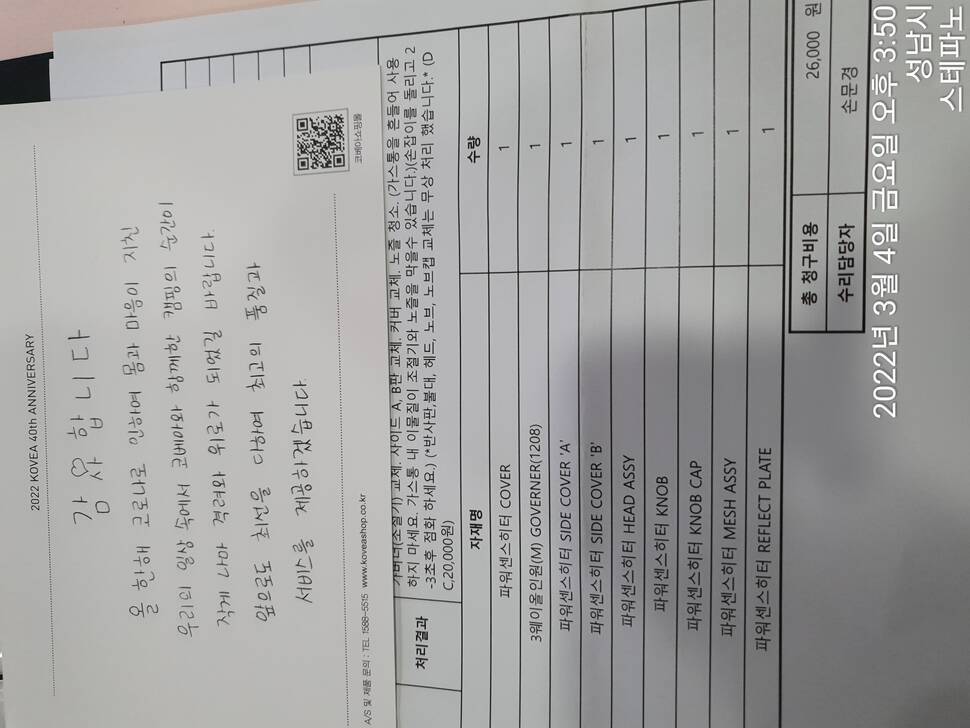 2022 KOVEA 40th ANNIVERSARY
감사♡합니다
올 한해 코로나로 인하여 몸과 마음이 지친
우리의 일상속에서 코베아와 함께한 캠핑의 순간이
작게 나마 위로가 되었길 바랍니다
앞으로도 최선을 다하여 최고의 품질과
서비스를 제공하겠습니다
A/S 및 제품 문의 : TEL 1588-5515 www.koveashop.co.kr
코베아쇼핑몰
처리결과
가버너(조절기) 교체. 사이드 A, B판 교체. 커버 교체. 노즐 청소. (가스통을 흔들어 사용
하지 마세요. 가스통 내 이물질이 조절기와 노즐을 막을수 있습니다.)(손잡이를 돌리고 2
-3초후 점화 하세요.) (*반사판,불대, 헤드, 노브, 노브캡 교체는 무상 처리 했습니다.* (D
C,20,000원)
자재명 수량
파워센스히터 COVER 1
3웨이올인원(M) GOVERNER(1208) 1
파워센스히터 SIDE COVER 'A' 1
파워센스히터 SIDE COVER 'B' 1
파워센스히터 HEAD ASSY 1
파워센스히터 KNOB 1
파워센스히터 KNOB CAP 1
파워센스히터 MESH ASSY 1
파워센스히터 REFLECT PLATE 1
총 청구비용 26,000 원
수리담당자 손문경
2022년 3월 4일 금요일 오후 3:50
성남시
스테파노